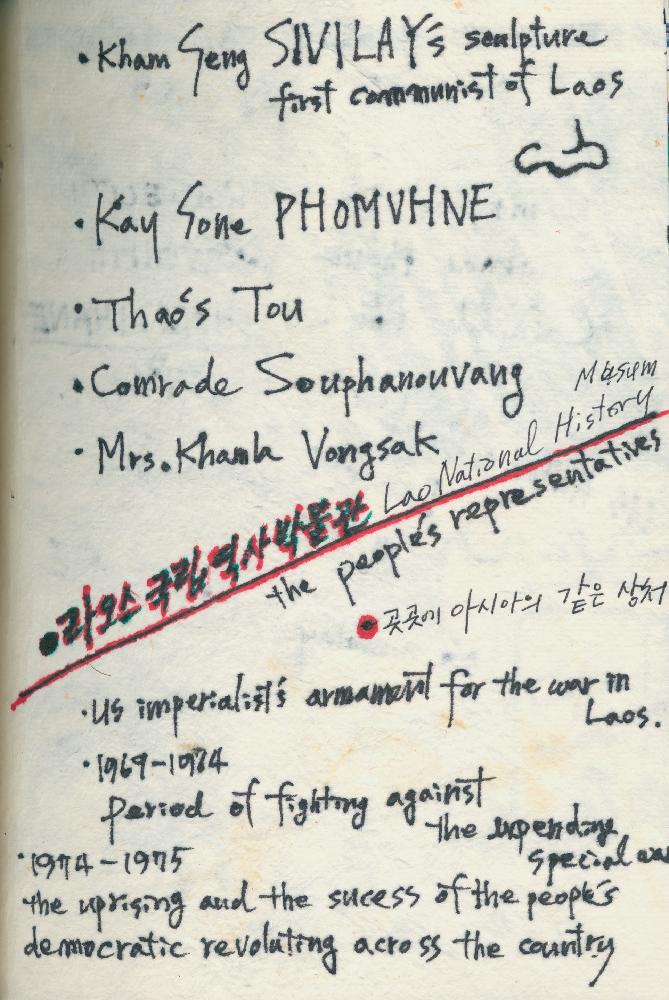 • Kham Seng SIVILAY's sculpture
first communist of Laos
• Kay Sone PHOMVHNE
• Thao's Tou
• Comrade Souphanouvang
• Mrs. Khamla Vongsak
• 라오스 국립 역사 박물관 Lao National History
Musum
the people's representatives
• 곳곳에 아시아의 같은 상처
• US imperialist's armament for the war in
Laos.
• 1969-1974
period of fighting against
the expending
special war
• 1974-1975
the uprising and the sucess of the people's
democratic revoluting across the country